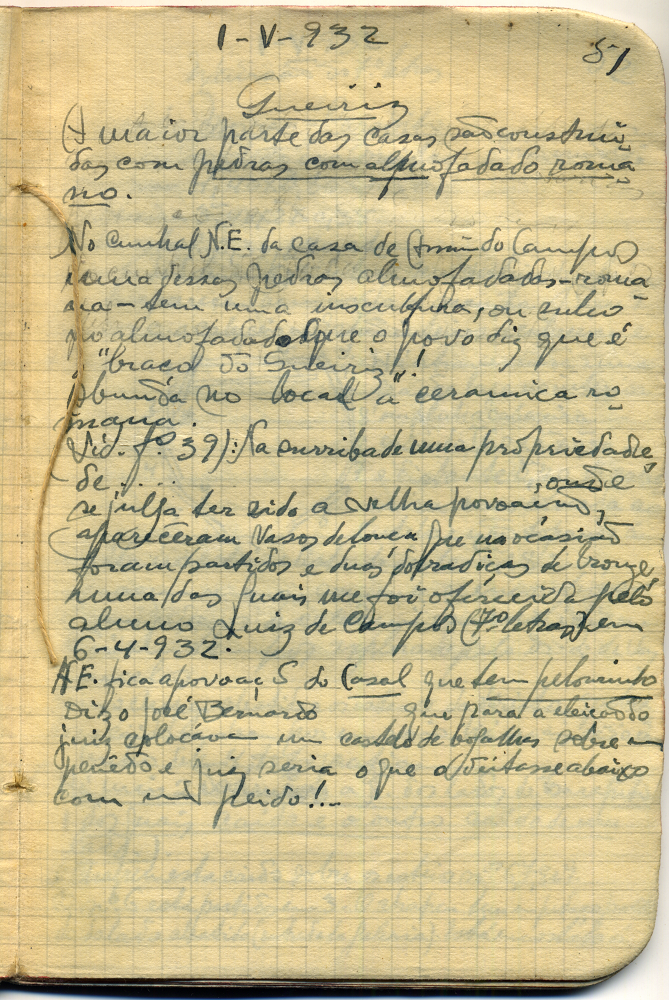 I-V-932
51
Queiriz
A maior parte das casas são constrúi-
das com pedras com almofadado roma-
no.
No cunhal N.E. da casa de Armindo Campos
numa dessas pedras almofadadas-roma-
na-tem uma inscultura, ou
almofadado que o povo diz que é
"braço do Queiriz"!
Abunda no local a ceramica ro-
mana.
Vid. fº. 39): Na surriba de uma propriedade,
de ..... , onde
se julga ter sido a velha povoação,
apareceram vasos de louça que na ocásião
foram partidos e duas dobradiças de bronze,
numa das quais me foi oferecida pelo
aluno Luiz de Campos (7º letras) em
6-4-932.
A E. fica a povoaç do Casal que tem pelourinho
Diz o José Bernardo que para a eleição do
juiz colocávam um castelo de bogalhas sobre um
penêdo e juiz seria o que o deitasse abaixo
com um peido!..